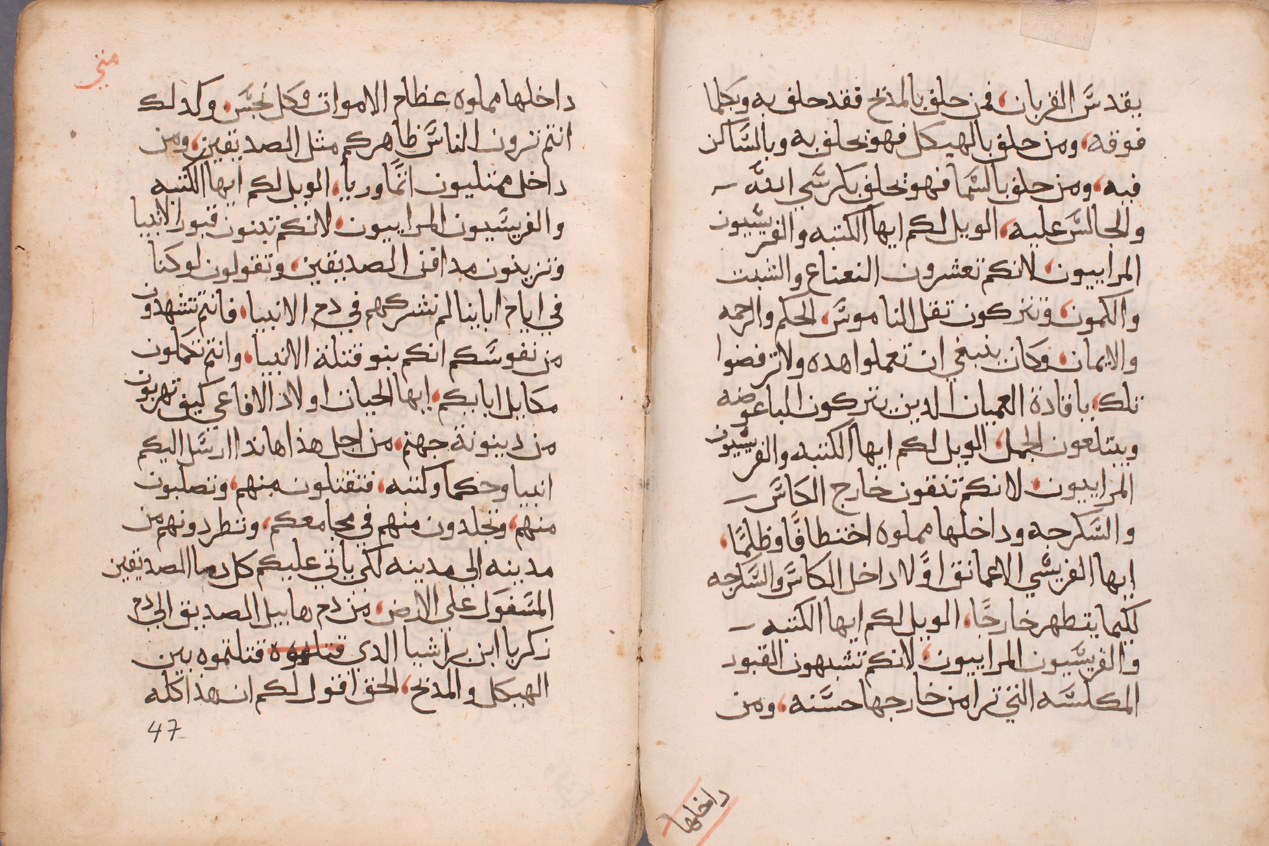 يقدس القربان، فمن حلف بالمدبح فقد حلف به وبكلما
فوقه، ومن حلف بالهيكل فهو يحلف به وبالساكن
فيه، ومن حلف بالسما فهو يحلف بكرسي الله
والجالس عليه، الويل لكم ايها الكتبه والفريسيون
المراييون، لانكم تعشرون النعناع والشبت
والكمون، وتتركون تقل الناموس، الحكم والرحمه
والايمان، وكان ينبغي ان تعملوا هده ولا ترفضوا
تلك، يا قادة العميان الدين يتركون الباعوضه
ويبتلعون الجمل، الويل لكم ايها الكتبه والفريسيون
المراييون، لانكم تنقون خارج الكاس
والسكرجه وداخلها مملوه اختطافًا وظلمًا،
ايها الفريسي الاعما نق اوًلا داخل الكاس والسكرجه
لكيما يتطهر خارجًا، الويل لكم ايها الكتبه
والفريسيون المراييون، لانكم تشبهون القبور
المكلسه التي ترا من خارجها حسنه، ومن
داخلها
متى
داخلها مملوه عظام الاموات وكل نجس، وكدلك
انتم ترون الناس ظاهركم مثل الصديقين، ومن
داخل ممتليون اثمًا وريا، الويل لكم ايها الكتبه
والفريسيون المراييون، لانكم تبنون قبور الانبيا
وتزينون مدافن الصديقين، وتقولون لو كنا
في ايام اباينا لم نشركهم في دم الانبيا، فانتم تشهدون
من نفوسكم انكم بنو قتلة الانبيا، وانتم تكملون
مكايل ابايكم، ايها الحيات اولاد الافاعي كيف تهربون
من دينونة جهنم، من اجل هذا هاندا ارسل اليكم
انبيا وحكما وكتبه، فتقتلون منهم، وتصلبون
منهم، وتجلدون منهم في مجامعكم، وتطردونهم من
مدينه الى مدينه لكي ياتي عليكم كل دما الصديقين
المسفول على الارض، من دم هابيل الصديق الى دم
زكريا ابن براشيا الدي قتلتموه قتلتموه بين
الهيكل والمدبح، الحق اقول لكم ان هدا كله
47